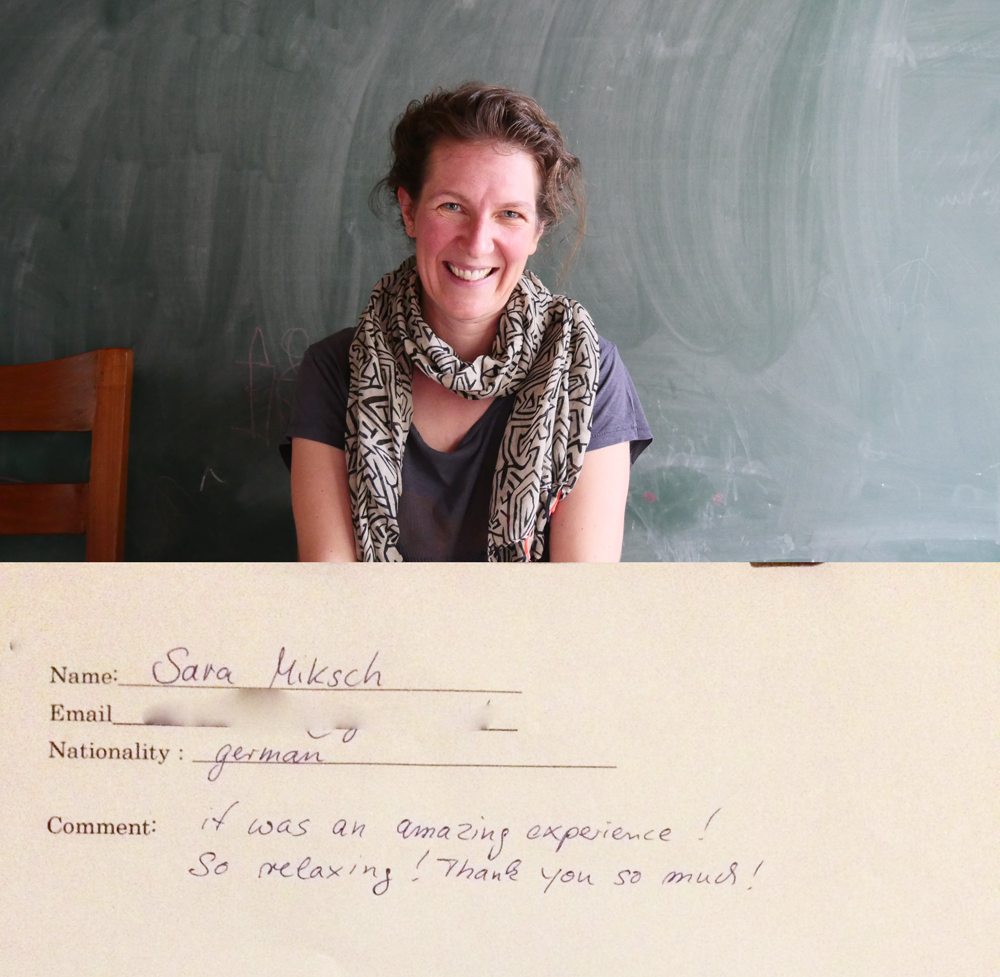 Name: Sara Miksch
Email
Nationality : german
Comment: it was an amazing experience !
So relaxing ! Thank you so much !